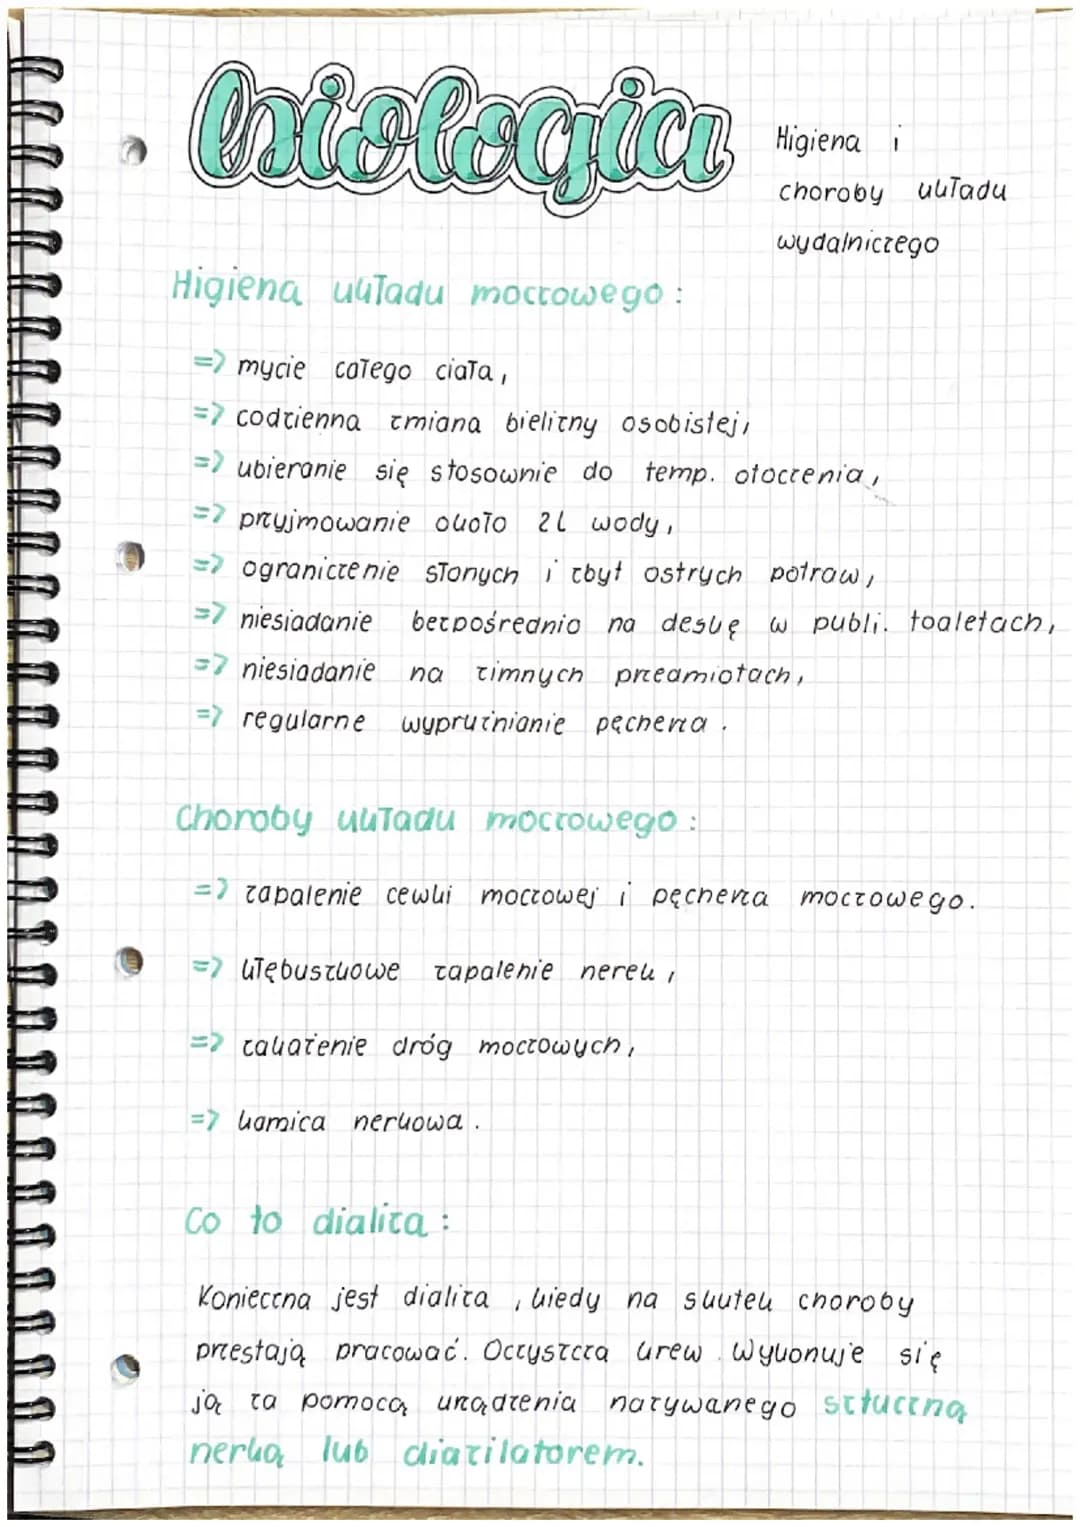 biologia
Higiena i
choroby układu
wydalniczego
Higiena układu moczowego:
=> mycie całego ciała,
=> codzienna zmiana bielizny osobistej,
=> ubieranie się stosownie do temp. otoczenia,
=> przyjmowanie około 2l wody,
=> ograniczenie słonych i zbyt ostrych potraw,
=> niesiadanie bezpośrednio na deskę w publi. toaletach,
=> niesiadanie na zimnych przedmiotach,
=> regularne wyprużnianie pęcherza.
Choroby układu moczowego:
=> zapalenie cewki moczowej i pęcherza moczowego.
=> kłębuszkowe zapalenie nerek,
=> zakażenie dróg moczowych,
=> kamica nerkowa.
Co to dializa:
Konieczna jest dializa, kiedy na skutek choroby
przestają pracować. Oczyszcza krew. Wykonuje się
ją za pomocą urządzenia nazywanego sztuczną
nerką lub diazilatorem.